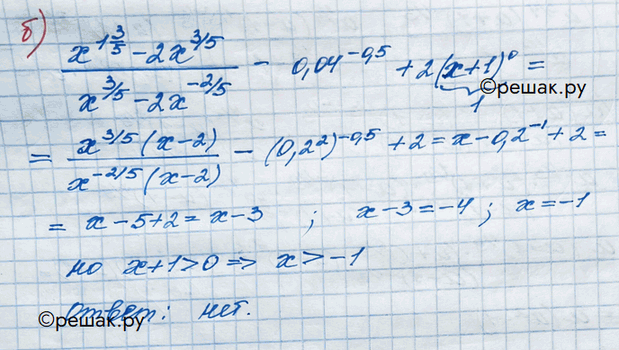 б) (x^(1 3/5) - 2x^(3/5)) / (x^(3/5) - 2x^(-2/5)) - 0,04^(-0,5) + 2(x+1)^0 =
1
©решак.ру
= (x^(3/5)(x-2)) / (x^(-2/5)(x-2)) - (0,2^2)^(-0,5) + 2 = x - 0,2^(-1) + 2 =
= x - 5 + 2 = x - 3 ; x - 3 = -4 ; x = -1
но x+1>0 => x > -1
Ответ: нет.
©решак.ру